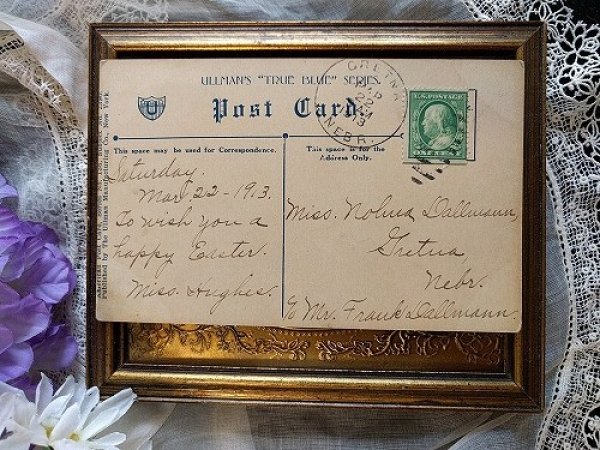 ULLMAN'S "TRUE BLUE" SERIES.
Post Card.
GRETNA
MAR
22
NEBR.
U.S. POSTAGE
This space may be used for Correspondence.
This space is for the
Address Only.
Published by The Ullman Manufacturing Co. New York.
Saturday.
Mar 22-1913.
To wish you a
happy Easter.
Miss. Hughes.
Miss. Nolma Dallmann,
Gretna
Nebr.
c/o Mr. Frank Dallmann.